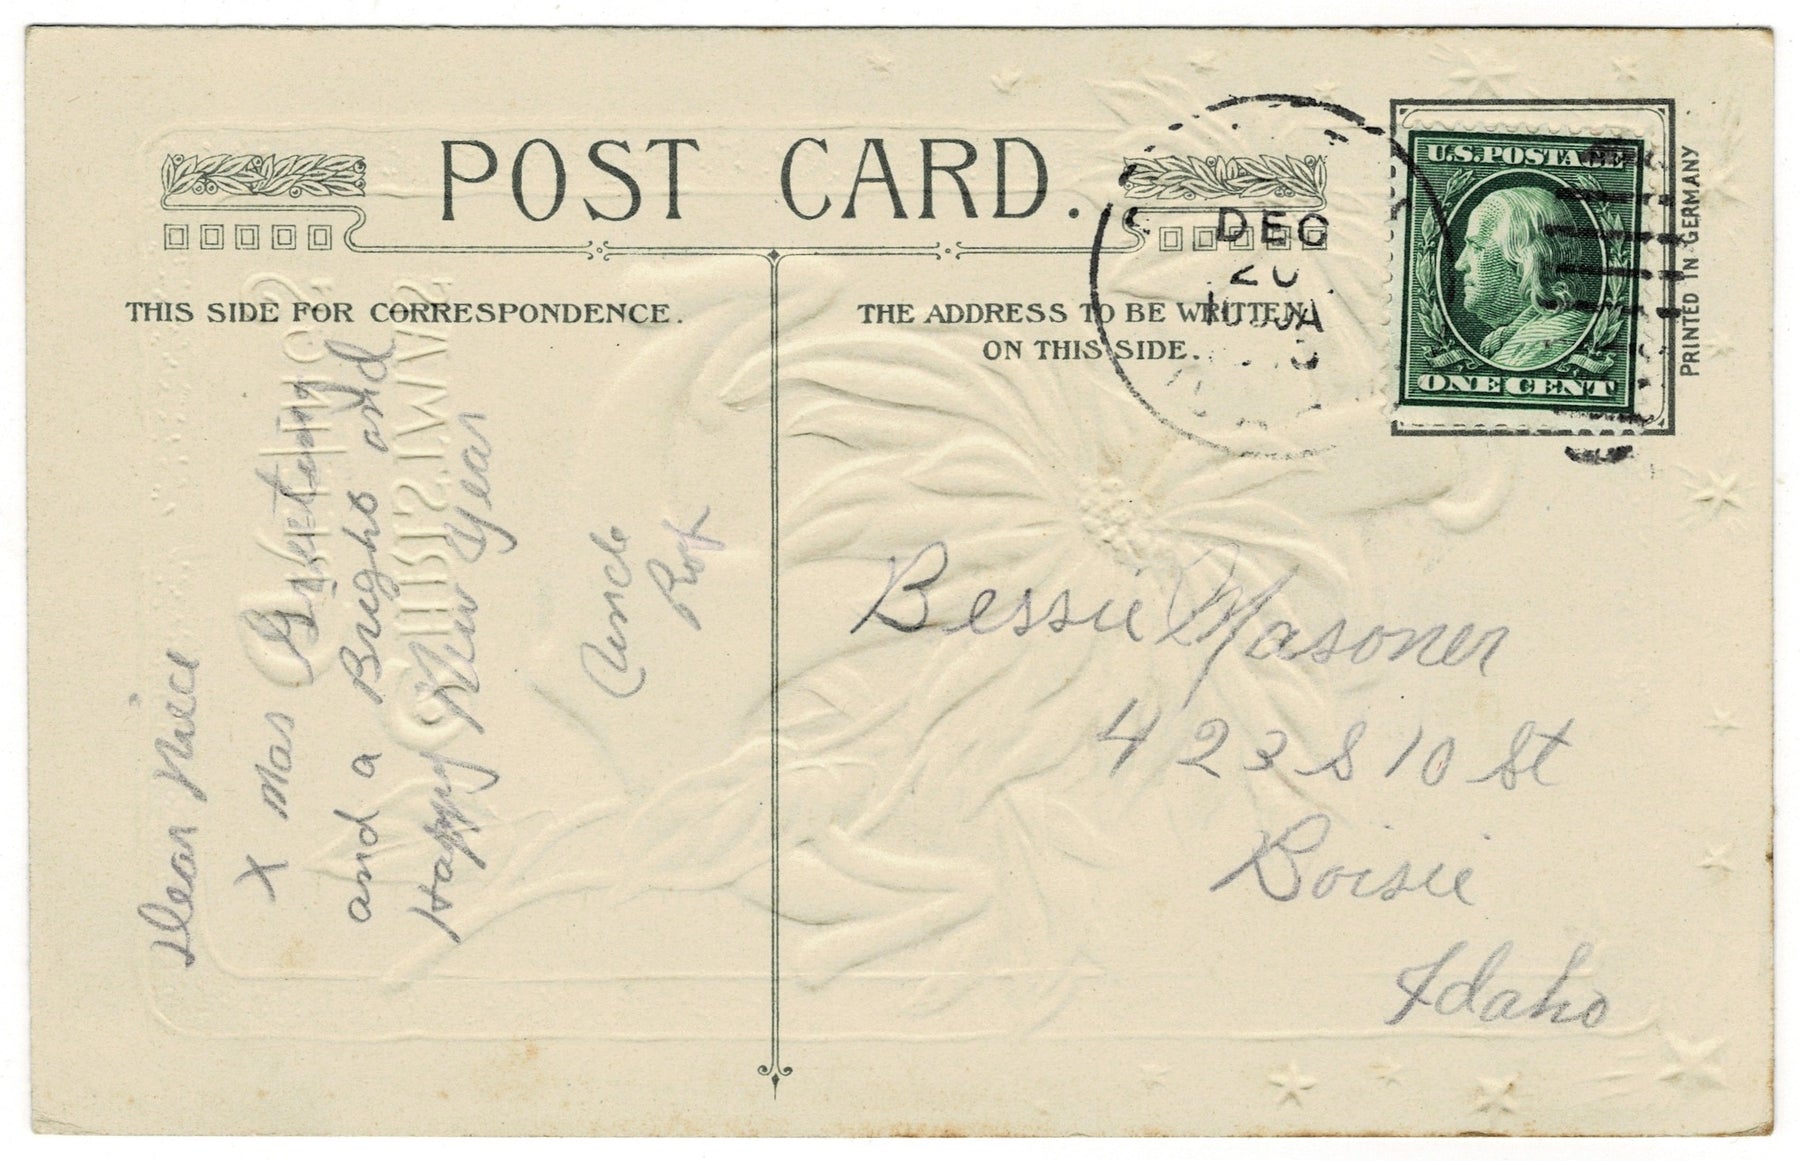 POST CARD.
THIS SIDE FOR CORRESPONDENCE.
THE ADDRESS TO BE WRITTEN
ON THIS SIDE.
U.S. POSTAGE
ONE CENT
PRINTED IN GERMANY
DEC
20
Dear Niece
X mas Greetings
and a Bright and
Happy New Year
Uncle
Bessie Masoner
423 S 10 St
Boisie
Idaho